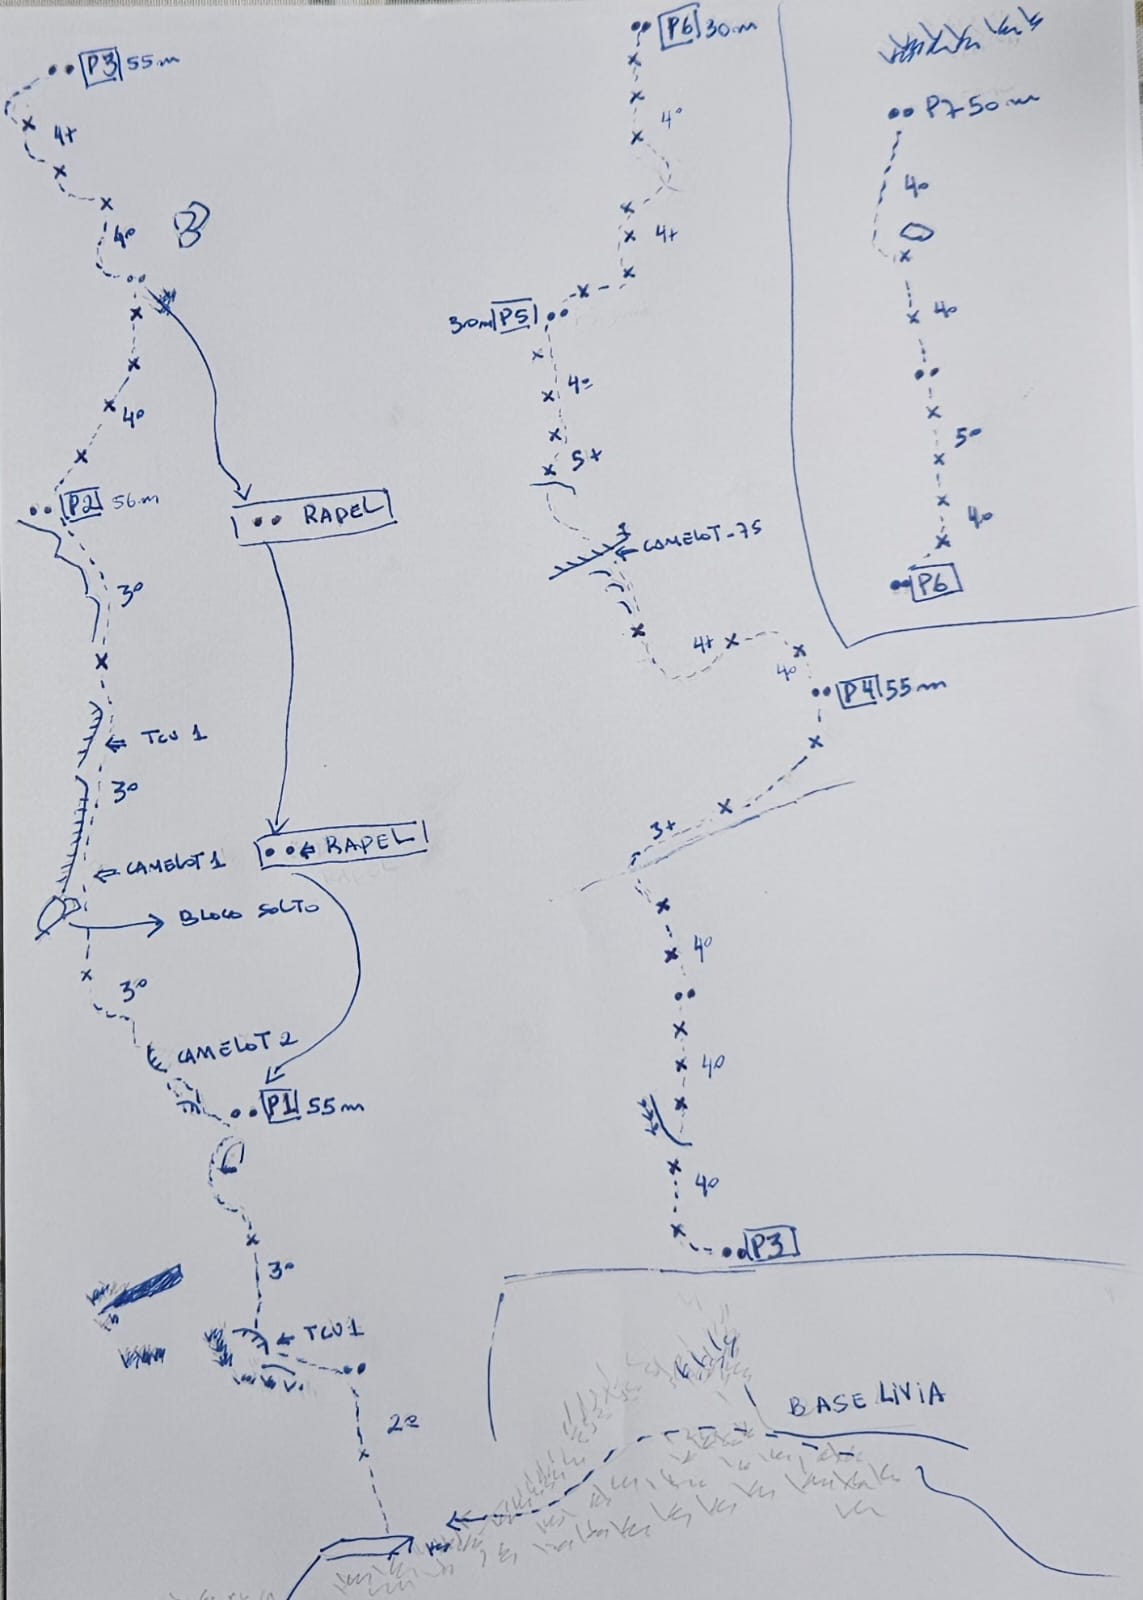 P3 55m
4+
4º
4º
P2 56m
RAPEL
3º
TCU 1
3º
CAMELOT 1
RAPEL
BLOCO SOLTO
3º
CAMELOT 2
P1 55m
3º
TCU1
2º
P6 30m
4º
4+
30m P5
4º
5+
CAMELOT .75
4+
4º
P4 55m
3+
4º
4º
4º
P3
P7 50m
4º
4º
5º
4º
P6
BASE LIVIA